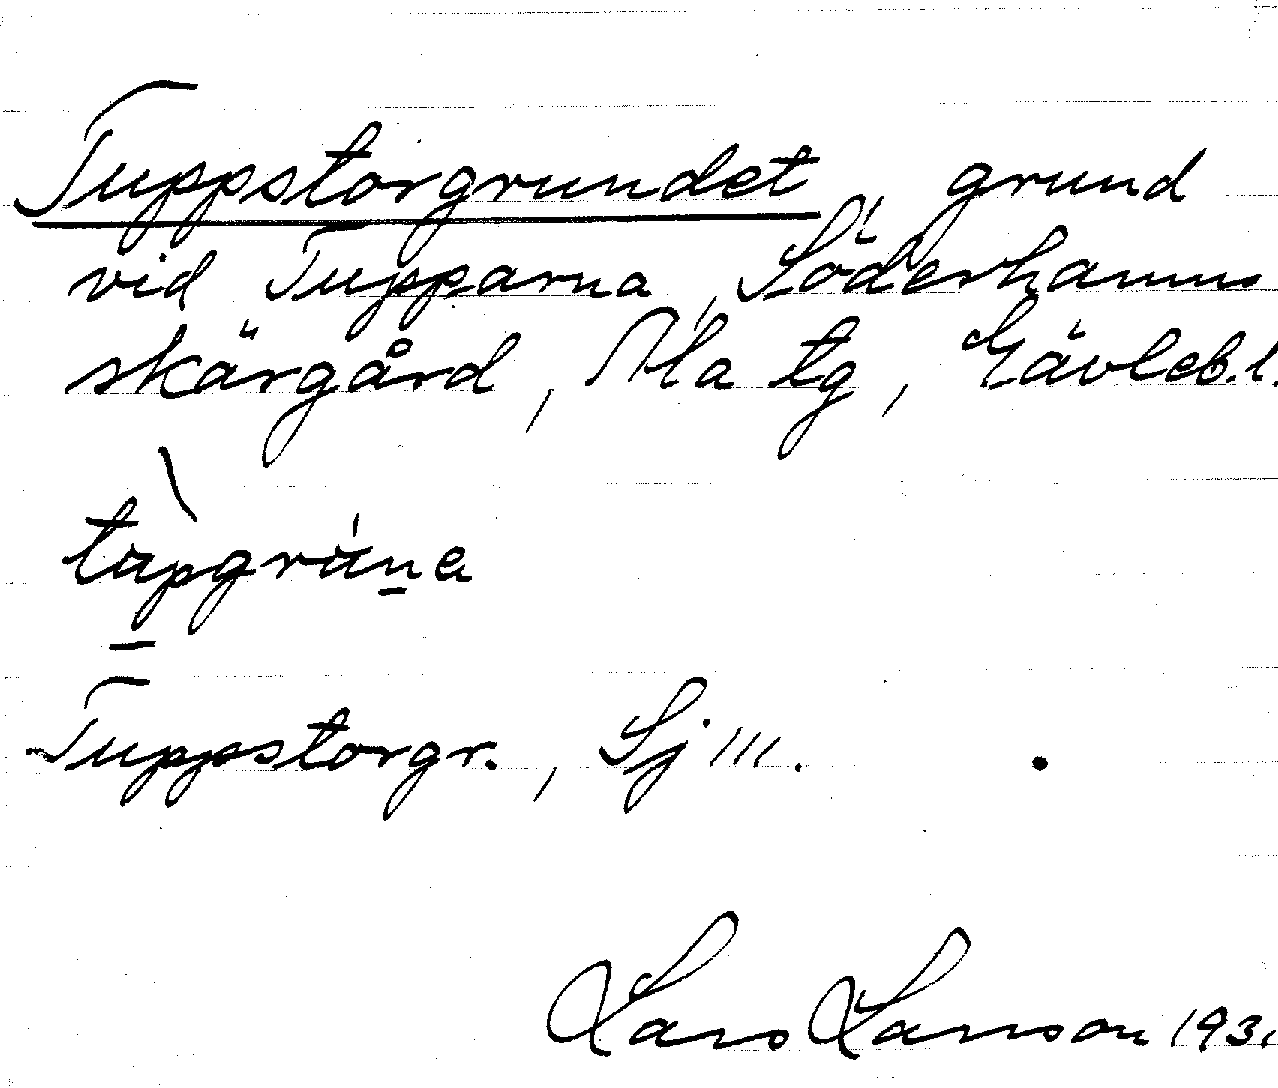 Tuppstorgrundet, grund
vid Tupparna, Söderhamns
skärgård, Ala tg, Gävleb.l.
tàpgrúna
Tuppstorgr., Sj 111.
Lars Larsson 1931